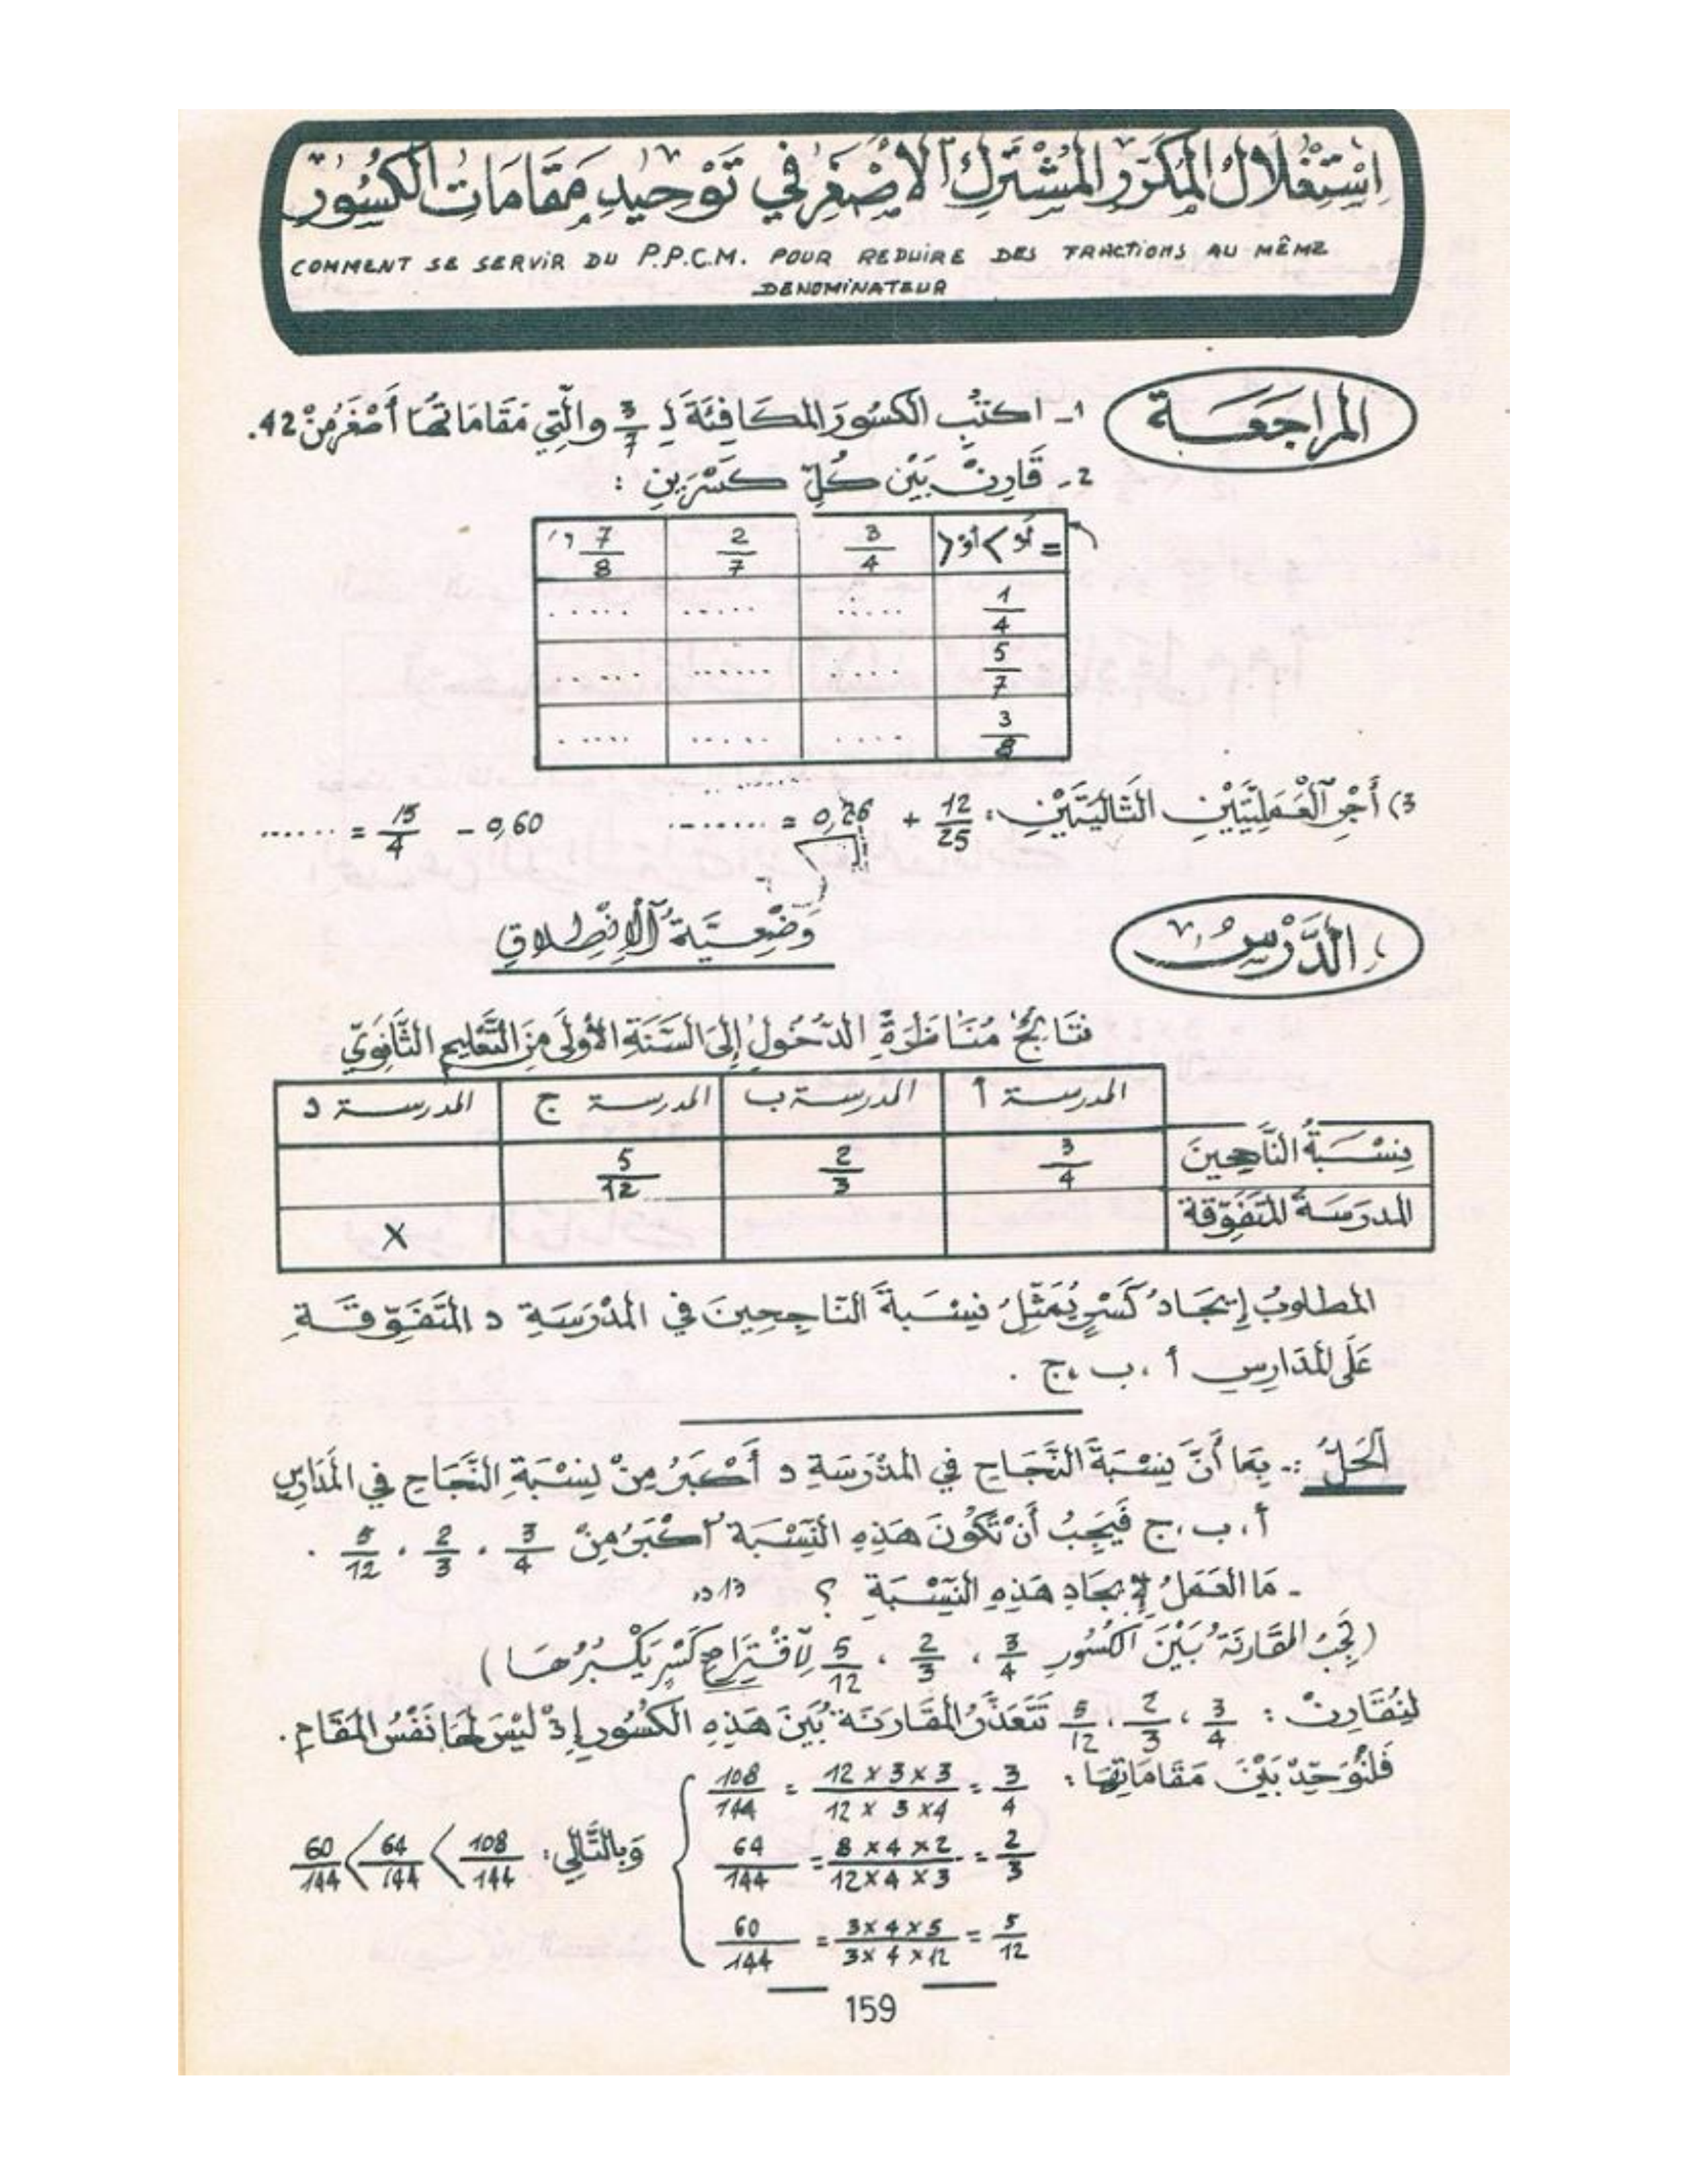 اِسْتِغْلَالُ المُكَرَّرِ المُشْتَرَكِ الأَصْغَرِ فِي تَوْحِيدِ مَقَامَاتِ الكُسُورِ
COMMENT SE SERVIR DU P.P.C.M. POUR REDUIRE DES FRACTIONS AU MÊME
DENOMINATEUR
المراجَعَة
1- اكتُبِ الكسُورَ المكَافِئَةَ لِـ 3/7 والّتِي مَقَامَاتُهَا أَصْغَرُ مِنْ 42.
2- قَارِنْ بَيْنَ كُلِّ كَسْرَيْنِ :
= أو > أو < 3/4 2/7 7/8
1/4 ..... ..... .....
5/7 ..... ..... .....
3/8 ..... ..... .....
3) أَجْرِ العَمَلِيَّتَيْنِ التَّالِيَتَيْنِ: 12/25 + 0,26 = ........ 0,60 - 15/4 = ......
الدَّرْسُ
وَضْعِيَّةُ الاِنْطِلاقِ
نتَائِجُ مُنَاظَرَةِ الدّخُولِ إِلَى السَّنَةِ الأُولَى مِنَ التَّعْلِيمِ الثَّانَوِيّ
المدرسة أ المدرسة ب المدرسة ج المدرسة د
نِسْبَةُ النَّاجِحِينَ 3/4 2/3 5/12
المدرَسَةُ المتَفَوّقة X
المطلوبُ إِيجَادُ كَسْرٍ يُمَثِّلُ نِسْبَةَ النّاجِحِينَ في المدْرَسَةِ د المتَفَوِّقَةِ
عَلَى المدَارِسِ أ ، ب ، ج .
الحَلُّ :- بِمَا أَنَّ نِسْبَةَ النَّجَاحِ في المدْرَسَةِ د أَكْبَرُ مِنْ نِسْبَةِ النَّجَاحِ في المَدَارِسِ
أ ، ب ، ج فَيَجِبُ أَنْ تَكُونَ هَذِهِ النِّسْبَة أَكْبَرُ مِنْ 3/4 ، 2/3 ، 5/12 .
- مَا العَمَلُ لإِيجَادِ هَذِهِ النِّسْبَةِ ؟
(تَجِبُ المقَارَنَةُ بَيْنَ الكُسُورِ 3/4 ، 2/3 ، 5/12 لاِقْتِرَاحِ كَسْرٍ يَكْبُرُهَا)
لِنُقَارِنْ : 3/4 ، 2/3 ، 5/12 تَتَعَذَّرُ المقَارَنَةُ بَيْنَ هَذِهِ الكسُورِ إِذْ لَيْسَ لَهَا نَفْسُ المقَامِ .
فَلْنُوَحِّدْ بَيْنَ مَقَامَاتِهَا :
3/4 = 12 x 3 x 3/12 x 3 x 4 = 108/144
2/3 = 8 x 4 x 2/12 x 4 x 3 = 64/144
5/12 = 3 x 4 x 5/3 x 4 x 12 = 60/144
وَبِالتَّالِي: 108/144 > 64/144 > 60/144
159